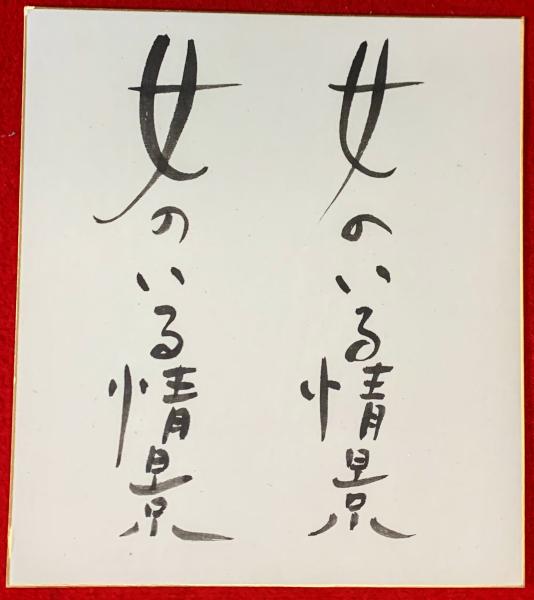 女のいる情景
女のいる情景